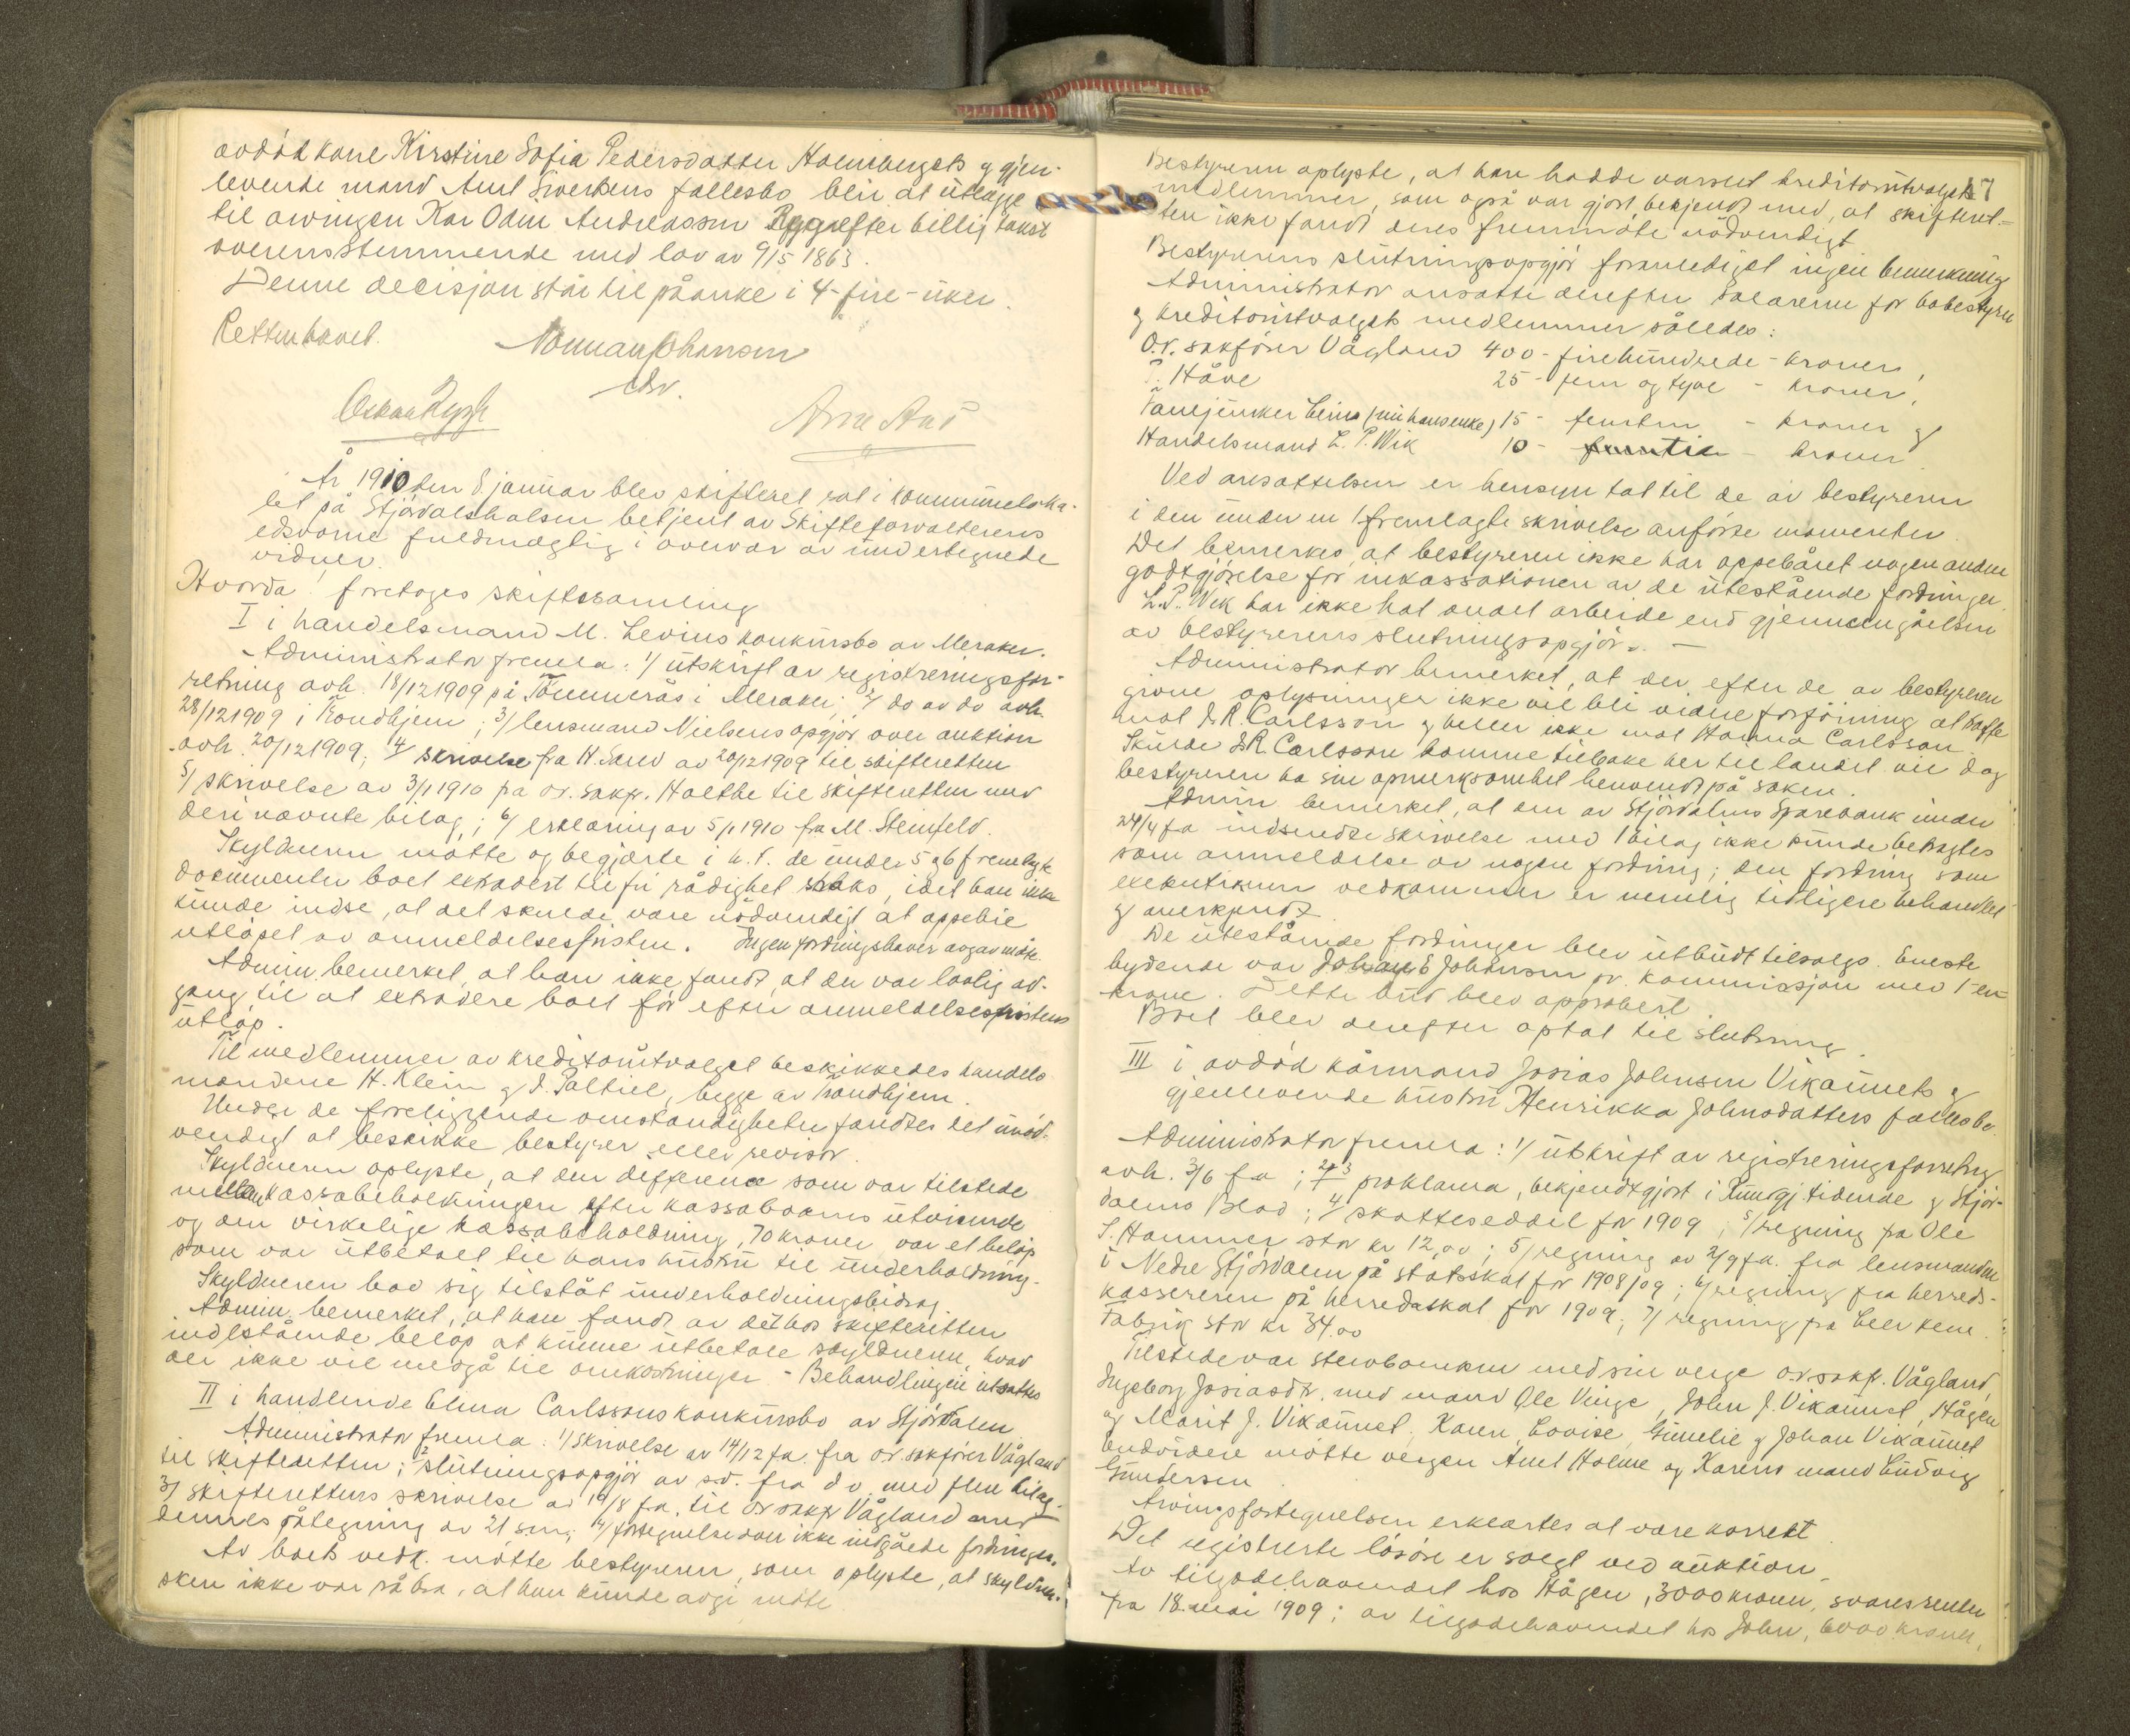 avdöd kone Kirstine Sofia Pedersdatter Holmbergets og gjen-
levende mand Aml Siversens fællesbo blir at utlægge
til arvingen Kar Odin Andreassen Rygg efter billig takst
overensstemmende med lov av 9/5 1863.
Denne decisjon står til påanke i 4-fire-uker.
Retten hævet.
Norman Johansen
cbv.
Oskar Rygh
Arne Aas
År 1910 den 8 januar blev skifteret sat i kommuneloka-
let på Stjördalshalsen betjent av Skifteforvalterens
edsvorne fuldmægtig i overvær av undertegnede
vidner.
Hvorda! foretoges skiftesamling
I i handelsmand M. Levins konkursbo av Meraker.
Administrator fremla: 1/ utskrift av registreringsfor-
retning avh. 18/12 1909 på Tömmerås i Meraker; 2/ do av do avh.
28/12 1909 i Trondhjem; 3/ lensmand Nielsens opgjör over auktion
avh. 20/12 1909; 4/ skrivelse fra H. Sand av 20/12 1909 til skifteretten
5/ skrivelse av 3/1 1910 fra o.r. sakf. Holthe til skifteretten med
deri nævnte bilag; 6/ erklæring av 5/1 1910 fra M. Steinfeld.
Skyldneren mötte og begjærte i h.t. de under 5 og 6 fremlagte
documenter boet extradert til fri rådighet straks, idet han ikke
kunde indse, at det skulde være nödvendigt at oppebie
utlöpet av anmeldelsesfristen. Ingen fordringshaver avgav möte.
Admin. bemerket, at han ikke fandt, at der var lovlig ad-
gang til at extradere boet för efter anmeldelsesfristens
utlöp.
Til medlemmer av kreditorutvalget beskikkedes handels-
mændene H. Klein og I. Paltiel, begge av Trondhjem.
Under de foreliggende omstændigheter fandtes det unöd-
vendigt at beskikke bestyrer eller revisor.
Skyldneren oplyste, at den difference som var tilstede
mellem kassabeholdningen efter kassabokens utvisende
og den virkelige kassabeholdning, 70 kroner var et belöp
som var utbetalt til hans hustru til underholdning.
Skyldneren bad sig tilståt underholdningsbidrag.
Admin. bemerket, at han fandt av det hos skifteretten
indestående belöp at kunne utbetale skyldneren, hvad
der ikke vil medgå til omkostninger. - Behandlingen utsattes
II i handlende Elma Carlssons konkursbo av Stjördalen
Administrator fremla: 1/ Skrivelse av 14/12 f.a. fra o.r. sakförer Vågland
til skifteretten; 2/ slutningsopgjör av s.d. fra do. med flere bilag.
3/ skifterettens skrivelse av 19/8 f.a. til o.r. sakf. Vågland med
dennes påtegning av 21 s.m; 4/ fortegnelse over ikke indgåede fordringer.
Av boets vedk. mötte bestyreren, som oplyste, at skyldner-
sken ikke var så bra, at hun kunde avgi möte
17
Bestyreren oplyste, at han hadde varslet kreditorutvalgets
medlemmer, som også var gjort bekjendt med, at skifteret-
ten ikke fandt deres fremmöte nödvendigt
Bestyrerens slutningsopgjör foranlediget ingen bemerkning
Administrator ansatte derefter salærerne for bobestyrer
og kreditorutvalgets medlemmer således:
O.r. sakförer Vågland 400 - firehundrede - kroner,
" Håve 25 - fem og tyve - kroner,
15 - femten - kroner og
Handelsmand L. P. Wik 10 - ti - kroner.
Ved ansættelsen er hensyn tat til de av bestyreren
i den under nr 1 fremlagte skrivelse anförte momenter.
Det bemerkes, at bestyreren ikke har oppebåret nogen anden
godtgjörelse for inkassationen av de utestående fordringer.
L.P. Wik har ikke hat andet arbeide end gjennemgåelsen
av bestyrerens slutningsopgjör. -
Administrator bemerket, at der efter de av bestyreren
givne oplysninger ikke vil bli videre forföining at træffe
mot J.R. Carlsson og heller ikke mot Hanna Carlsson.
Skulde J.R. Carlsson komme tilbake her til landet vil dog
bestyreren ha sin opmerksomhet henvendt på saken.
Admin bemerket, at den av Stjördalens Sparebank under
24/4 f.a. indsendte skrivelse med 1 bilag ikke kunde betragtes
som anmeldelse av nogen fordring; den fordring som
exekutionen vedkommer er nemlig tidligere behandlet
og anerkjendt
De utestående fordringer blev utbudt tilsalgs. Eneste
bydende var Johan E Johansen pr. kommissjon med 1-en
krone. Dette bud blev approbert.
Boet blev derefter optat til slutning.
III i avdöd kårmand Josias Johnsen Vikaunets og
gjenlevende hustru Henrikka Johnsdatters fællesbo.
Administrator fremla: 1/ utskrift av registreringsforretning
avh. 3/6 f.a; 2/ 3 proklama, bekjendtgjort i Kunngj.tidende og Stjör-
dalens Blad; 4/ skatteseddel for 1909; 5/ regning fra Ole
S. Hammer stor kr 12,00; 5/ regning av 2/9 f.a. fra lensmanden
i Nedre Stjördalen på statsskat for 1908/09; 6/ regning fra herreds-
kassereren på herredsskat for 1909; 7/ regning fra
Fabrik stor kr 34.00
Tilstede var sterboenken med sin verge o.r. sakf. Vågland,
Ingeborg Josiasdtr. med mand Ole Vinge, John J. Vikaunet, Hågen
og Marit J. Vikaunet, Karen, Lovise, Gunelie og Johan Vikaunet
Endvidere mötte vergen Aml Holme og Karens mand Ludvig
Gundersen
Arvingsfortegnelsen erklærtes at være korrekt
Det registrerte lösöre er solgt ved auktion.
Av tilgodehavendet hos Hågen, 3000 kroner, svares renter
fra 18. mai 1909; av tilgodehavendet hos John, 6000 kroner,